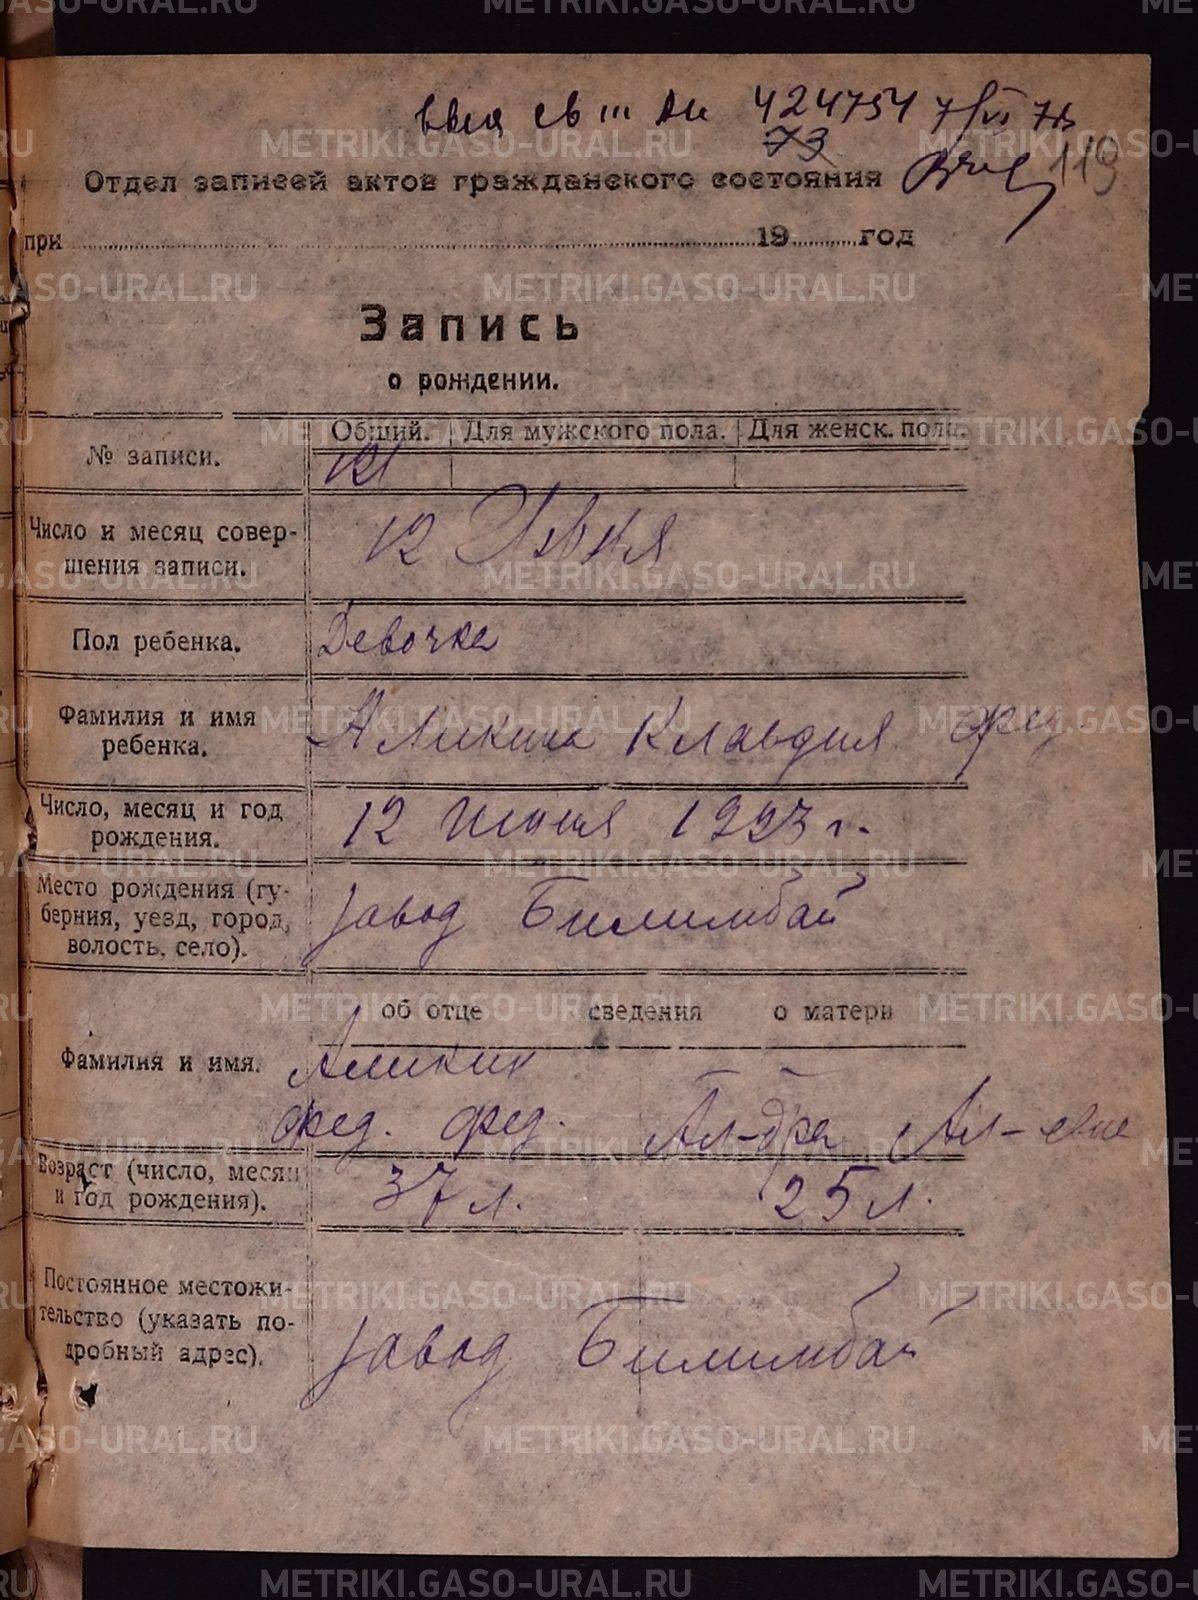 424754 7/VI 73
119
Отдел записей актов гражданского состояния
при 19 год
Запись
о рождении.
№ записи.
Общий. Для мужского пола. Для женск. пола.
121
Число и месяц совер-
шения записи.
12 Июня
Пол ребенка.
Девочка
Фамилия и имя
ребенка.
Аликина Клавдия Фед.
Число, месяц и год
рождения.
12 июня 1923 г.
Место рождения (гу-
берния, уезд, город,
волость, село).
завод Билимбай
об отце сведения о матери
Фамилия и имя.
Аликин
Фед. Фед. Ал-дра Ал-евна
Возраст (число, месяц
и год рождения).
37 л. 25 л.
Постоянное местожи-
тельство (указать по-
дробный адрес).
завод Билимбай
METRIKI.GASO-URAL.RU